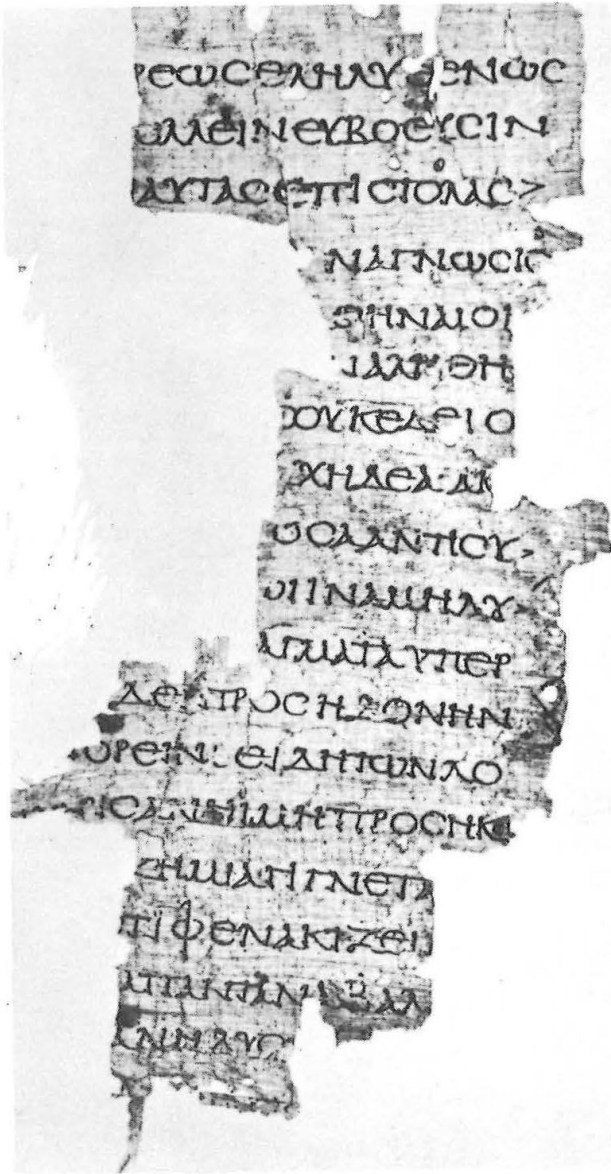 ΡΕΩϹΕΛΗΛΥΘΕΝΩϹ
ΛΛΕΙΝΕΥΒΟΕΥϹΙΝ
ΑΥΤΑϹΕΠΙϹΤΟΛΑϹ>
ΝΑΓΝΩϹΙϹ
ΘΗΝΑΙΟΙ
ΑΛΗΘΗ
ΟΥΚΕΔΕΙΟ
ΧΗΔΕΑΑΚ
ΟϹΑΑΝΤΙϹΥ>
ΩΙΙΝΑΜΗΛΥ
ΑΓΜΑΤΑΥΠΕΡ
ΔΕΙΠΡΟϹΗΔΟΝΗΝ
ΟΡΕΙΝΕΙΔΗΤΩΝΛΟ
ΙϹΑΝΗΙΜΗΠΡΟϹΗΚ
ΖΗΜΙΑΓΙΓΝΕΤΑ
ΤΙΦΕΝΑΚΙΖΕΙ
ΑΠΑΝΤΑΝΑΒΑΛ
ΑΝΗΙΔΥϹ